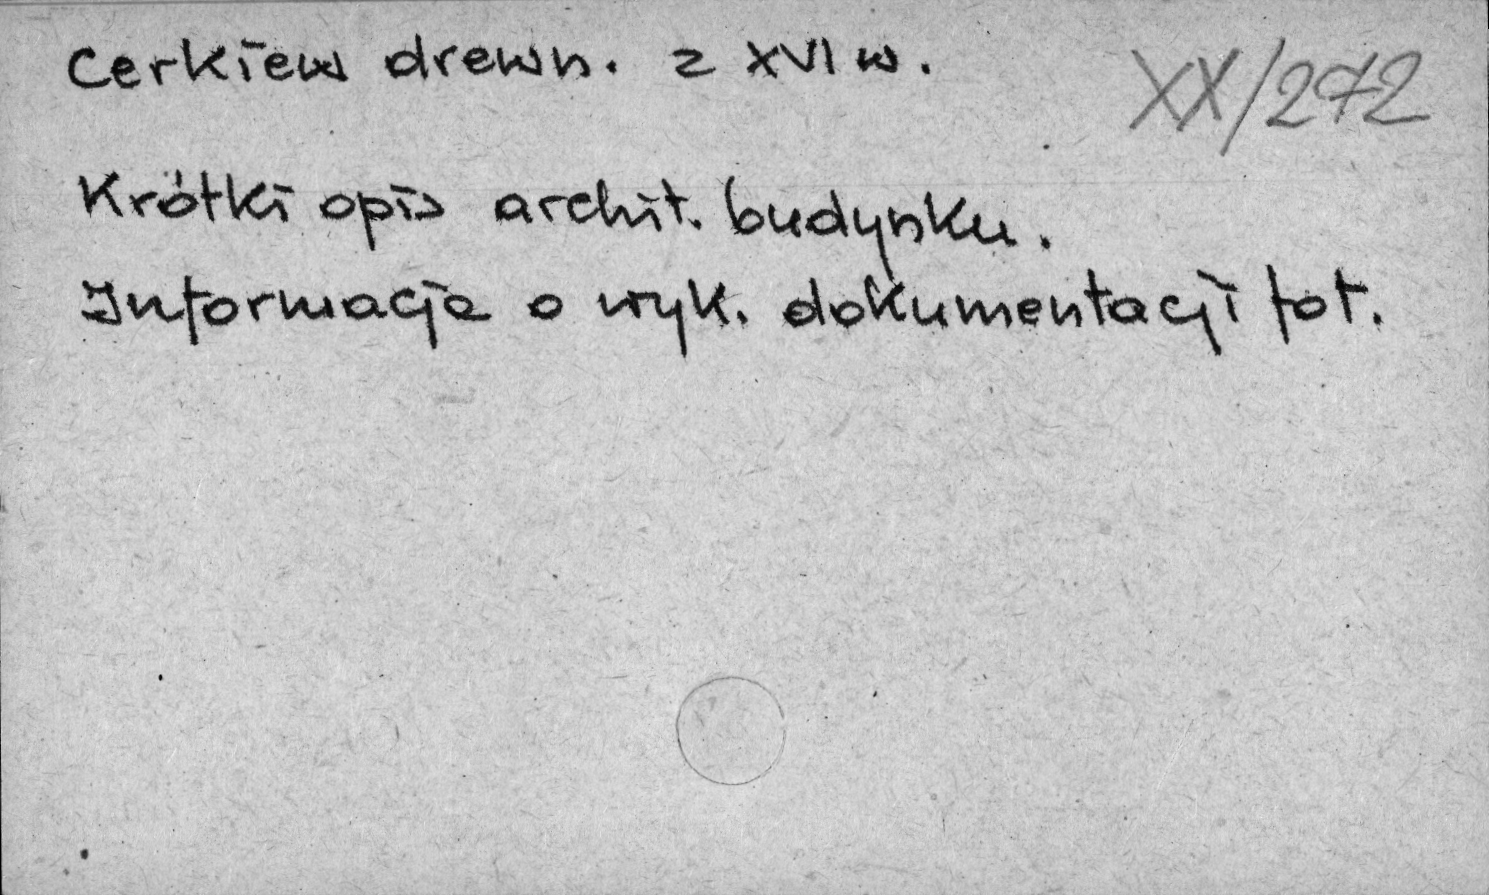 Cerkiew drewn. z XVI w.
XX/272
Krótki opis archit. budynku.
Informacje o wyk. dokumentacji fot.